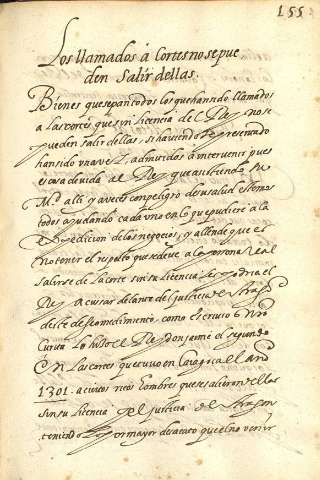 155
Los llamados á Cortes no se pue
den salir dellas.
Bien es que sepan todos los que han sido llamados
a las cortes, que sin licencia del Rey no se
pueden salir dellas, si haviendo se presentado
han sido una vez admitidos á intervenir pues
es cosa devida al Rey que asistiendo su
M.d alli y a veces con peligro de su salud estemos
todos ayudando cada uno en lo que pudiere á la
Expedicion de los negocios, y allende que es
no tener el respeto que se deve a la persona Real
salirse de la corte sin su licencia les podria el
Rey acusar delante del Justicia de Arag.n
deste descomedimiento, como escrive G.mo
Curita lo hizo el Rey don Jaime el segundo
En las cortes que tuvo en Caragoça el año
1301. a ciertos ricos hombres que se salieron dellas
sin su licencia y el Justicia de Aragon
teniendo por mayor desacato que el no venir